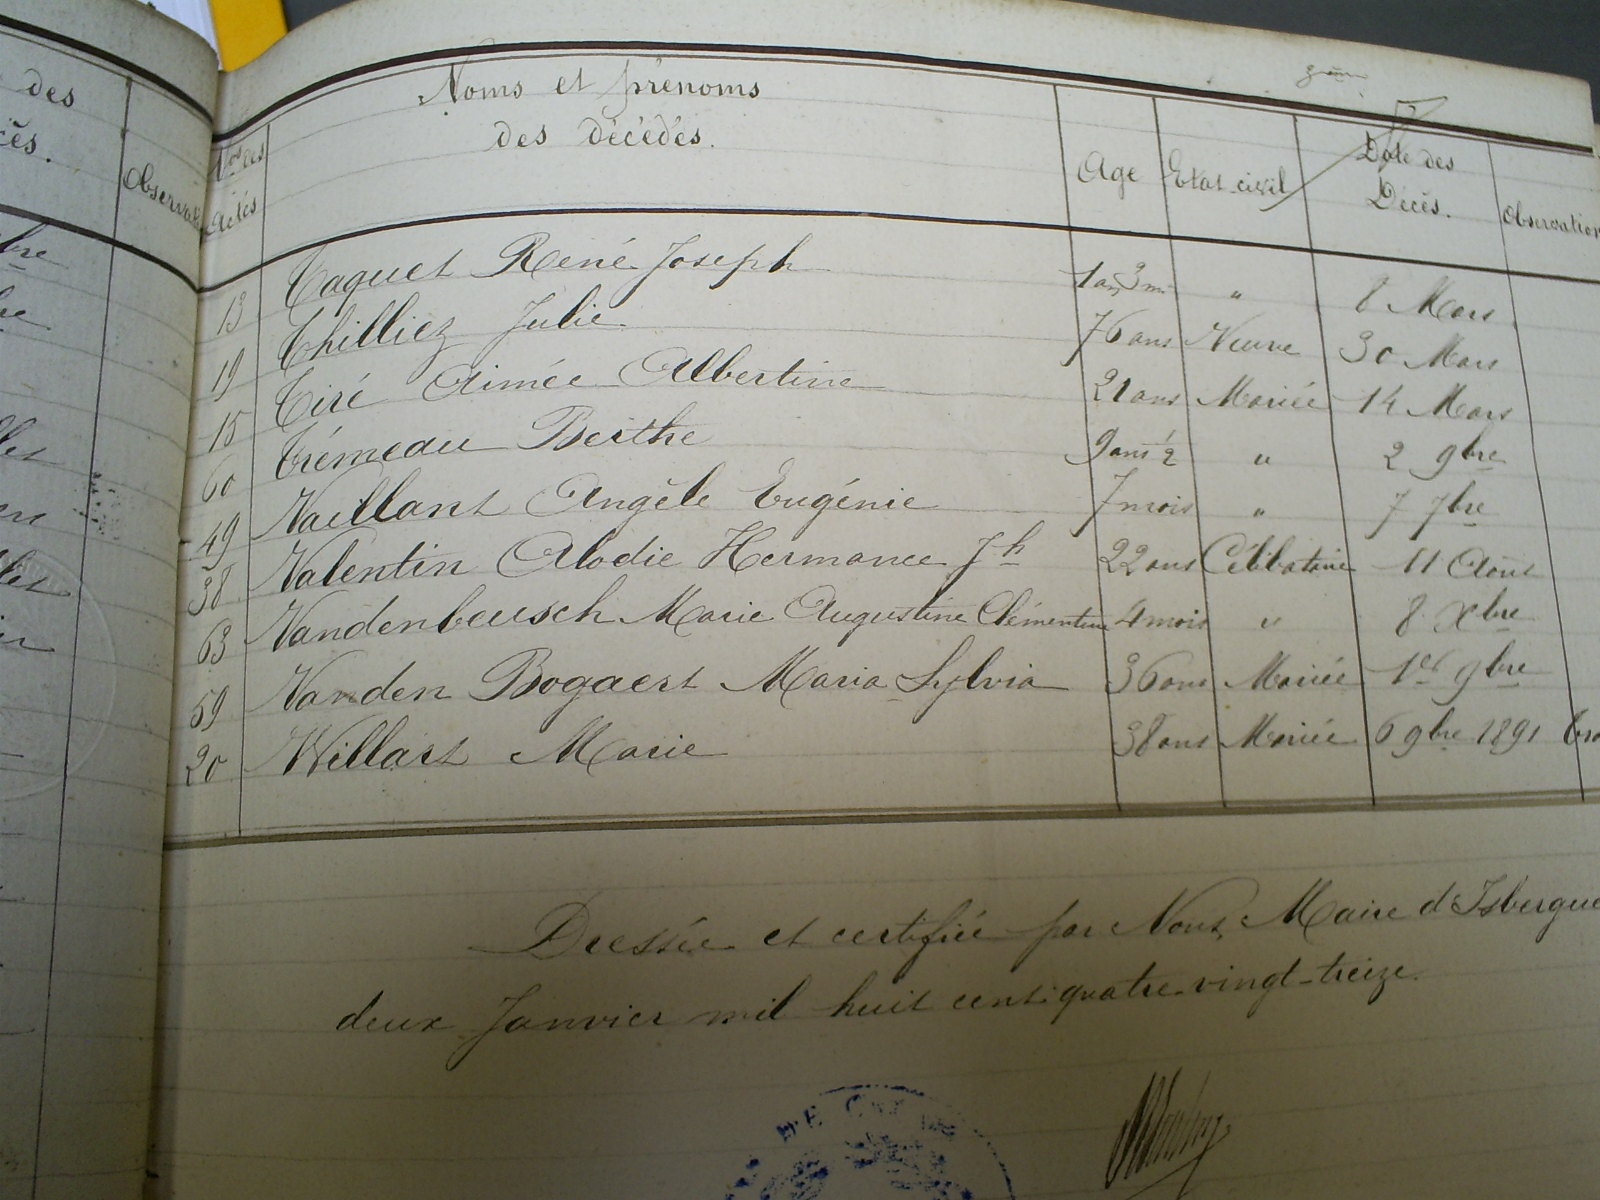 des
Observat
Nos des
actes
Noms et prénoms
des décédés.
Age
Etat-civil
Date des
Décès.
Observation
13 Taquet René Joseph 1 an 3 m " 8 Mars
19 Thilliez Julie 76 ans Veuve 30 Mars
15 Tiré Aimée Albertine 21 ans Mariée 14 Mars
60 Trémeau Berthe 9 ans 1/2 " 2 9bre
49 Vaillant Angèle Eugénie 7 mois " 7 7bre
38 Valentin Alodie Hermance Jh 22 ans Célibataire 11 Août
63 Vandenbeusch Marie Augustine Clémentine 4 mois " 8 Xbre
59 Vanden Bogaert Maria Sylvia 36 ans Mariée 1er 9bre
20 Willart Marie 38 ans Mariée 6 9bre 1891
Dressée et certifiée par Nous, Maire d'Isbergue
deux Janvier mil huit cent quatre-vingt-treize.